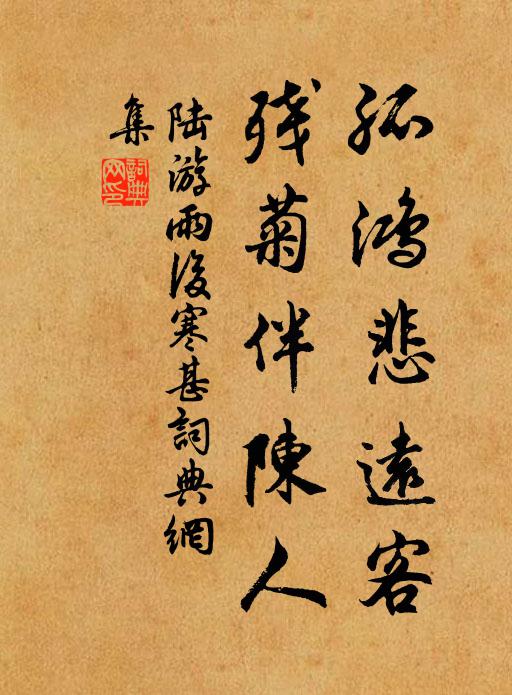 孤鴻悲遠客
残菊伴陳人
陆游雨後寒甚詞典網
集
詞典網印